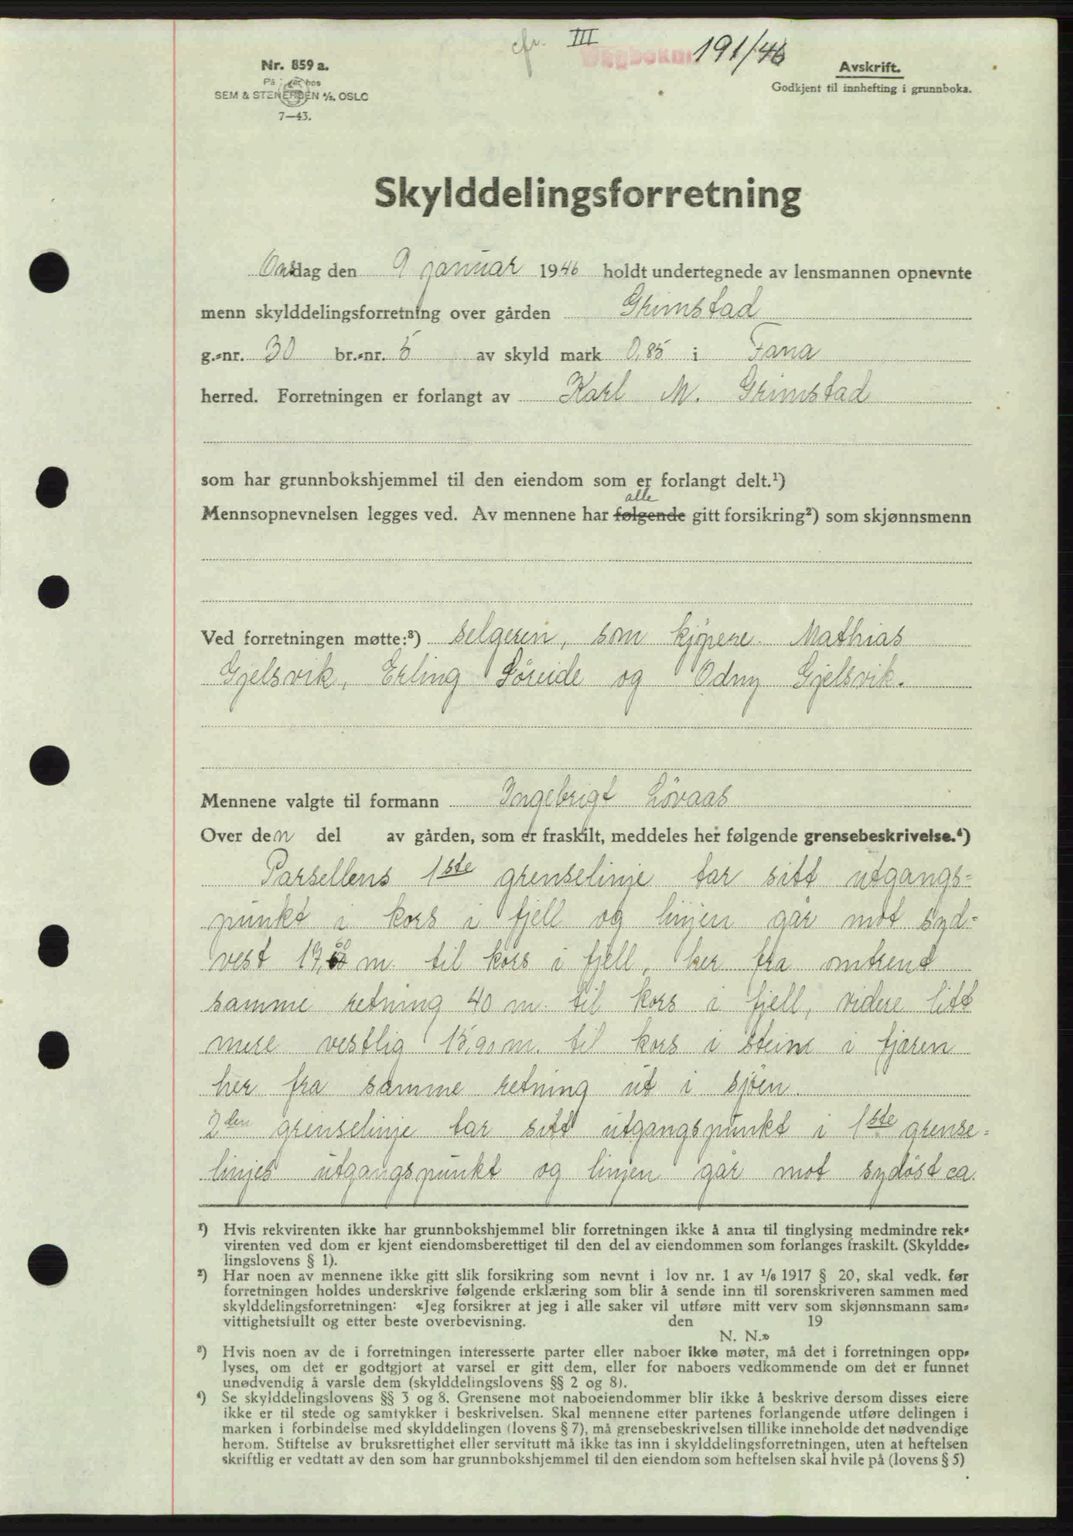 cfr. III
Dagboknr. 191/46
Nr. 859 a.
På lager hos
SEM & STENERSEN A/S, OSLO
7—43.
Avskrift.
Godkjent til innhefting i grunnboka.
Skylddelingsforretning
Onsdag den 9 januar 1946 holdt undertegnede av lensmannen opnevnte
menn skylddelingsforretning over gården Grimstad
g.-nr. 30 br.-nr. 5 av skyld mark 0,85 i Fana
herred. Forretningen er forlangt av Karl M. Grimstad
som har grunnbokshjemmel til den eiendom som er forlangt delt.¹)
alle
Mennsopnevnelsen legges ved. Av mennene har følgende gitt forsikring²) som skjønnsmenn
Ved forretningen møtte:³) selgeren, som kjøpere. Mathias
Gjelsvik, Erling Søreide og Odny Gjelsvik.
Mennene valgte til formann Ingebrigt Løvaas
Over den del av gården, som er fraskilt, meddeles her følgende grensebeskrivelse.⁴)
Parsellens 1ste grenselinje tar sitt utgangs-
punkt i kors i fjell og linjen går mot syd-
vest 19, m. til kors i fjell, her fra omtrent
samme retning 40 m. til kors i fjell, videre litt
mere vestlig 15,90 m. til kors i steine i fjæren
her fra samme retning ut i sjøen.
2den grenselinje tar sitt utgangspunkt i 1ste grense-
linjes utgangspunkt og linjen går mot sydøst ca.
¹) Hvis rekvirenten ikke har grunnbokshjemmel blir forretningen ikke å anta til tinglysing medmindre rek-
virenten ved dom er kjent eiendomsberettiget til den del av eiendommen som forlanges fraskilt. (Skyldde-
lingslovens § 1).
²) Har noen av mennene ikke gitt slik forsikring som nevnt i lov nr. 1 av 1/6 1917 § 20, skal vedk. før
forretningen holdes underskrive følgende erklæring som blir å sende inn til sorenskriveren sammen med
skylddelingsforretningen: «Jeg forsikrer at jeg i alle saker vil utføre mitt verv som skjønnsmann sam-
vittighetsfullt og etter beste overbevisning. den 19
N. N.»
³) Hvis noen av de i forretningen interesserte parter eller naboer ikke møter, må det i forretningen opp-
lyses, om det er godtgjort at varsel er gitt dem, eller for naboers vedkommende om det er funnet
unødvendig å varsle dem (skylddelingslovens §§ 2 og 8).
⁴) Se skylddelingslovens §§ 3 og 8. Grensene mot naboeiendommer blir ikke å beskrive dersom disses eiere
ikke er til stede og samtykker i beskrivelsen. Skal mennene etter partenes forlangende utføre delingen i
marken i forbindelse med skylddelingen (lovens § 7), må grensebeskrivelsen tillike inneholde det nødvendige
herom. Stiftelse av bruksrettighet eller servitutt må ikke tas inn i skylddelingsforretningen, uten at heftelsen
skriftlig er vedtatt av den som har grunnbokshjemmel til den eiendom som heftelsen skal hvile på (lovens § 5)